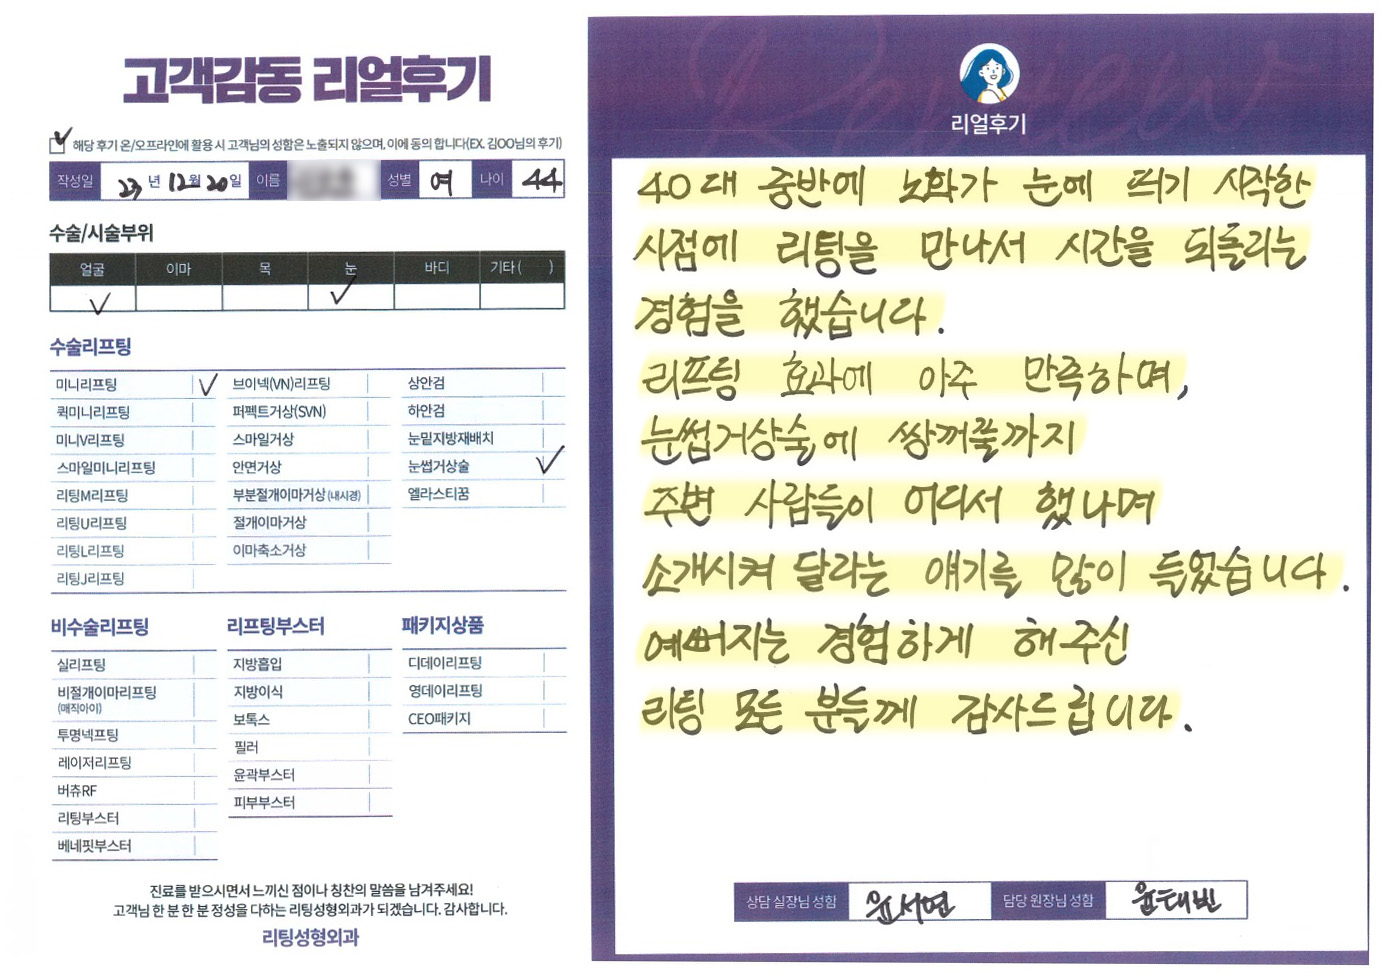 고객감동 리얼후기
해당 후기 온/오프라인에 활용 시 고객님의 성함은 노출되지 않으며, 이에 동의 합니다(EX. 김OO님의 후기)
작성일 23년 12월 20일 이름 성별 여 나이 44
수술/시술부위
얼굴 이마 목 눈 바디 기타( )
수술리프팅
미니리프팅 브이넥(VN)리프팅 상안검
퀵미니리프팅 퍼펙트거상(SVN) 하안검
미니V리프팅 스마일거상 눈밑지방재배치
스마일미니리프팅 안면거상 눈썹거상술
리팅M리프팅 부분절개이마거상(내시경) 엘라스티꿈
리팅U리프팅 절개이마거상
리팅L리프팅 이마축소거상
리팅J리프팅
비수술리프팅
실리프팅
비절개이마리프팅
(매직아이)
투명넥프팅
레이저리프팅
버츄RF
리팅부스터
베네핏부스터
리프팅부스터
지방흡입
지방이식
보톡스
필러
윤곽부스터
피부부스터
패키지상품
디데이리프팅
영데이리프팅
CEO패키지
진료를 받으시면서 느끼신 점이나 칭찬의 말씀을 남겨주세요!
고객님 한 분 한 분 정성을 다하는 리팅성형외과가 되겠습니다. 감사합니다.
리팅성형외과
Review
리얼후기
40대 중반에 노화가 눈에 띄기 시작한
시점에 리팅을 만나서 시간을 되돌리는
경험을 했습니다.
리프팅 효과에 아주 만족하며,
눈썹거상술에 쌍꺼풀까지
주변 사람들이 어디서 했냐며
소개시켜 달라는 얘기를 많이 들었습니다.
예뻐지는 경험하게 해주신
리팅 모든 분들께 감사드립니다.
상담 실장님 성함 윤서연 담당 원장님 성함 윤태빈